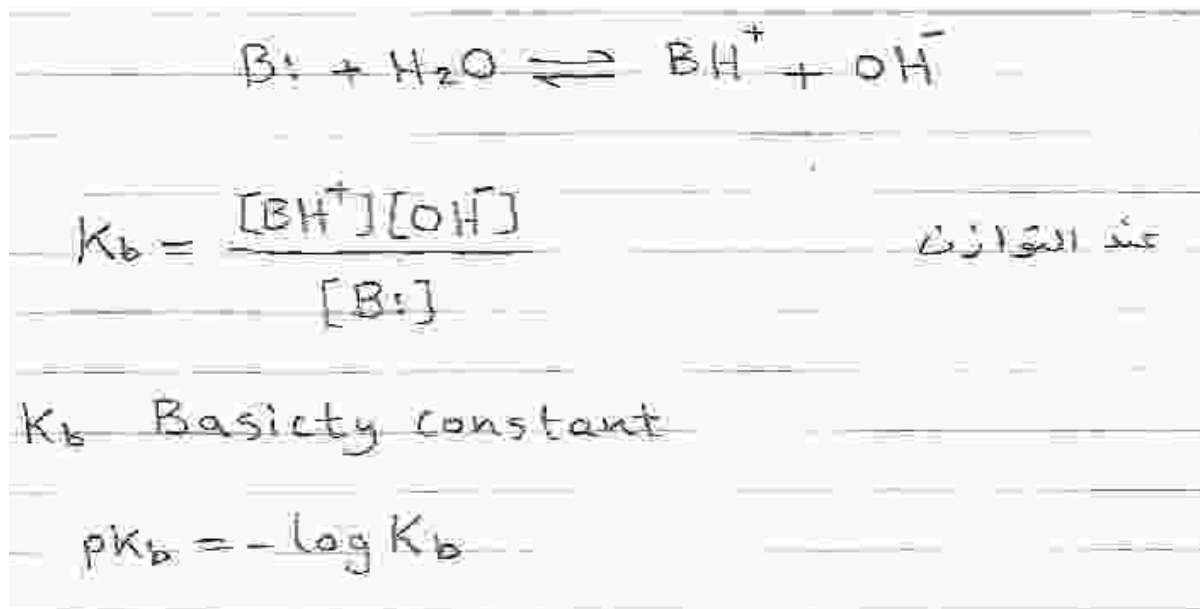 B: + H₂O ⇌ BH⁺ + OH⁻
Kb = [BH⁺][OH⁻] / [B:]
عند التوازن
Kb Basicty constant
pKb = - log Kb